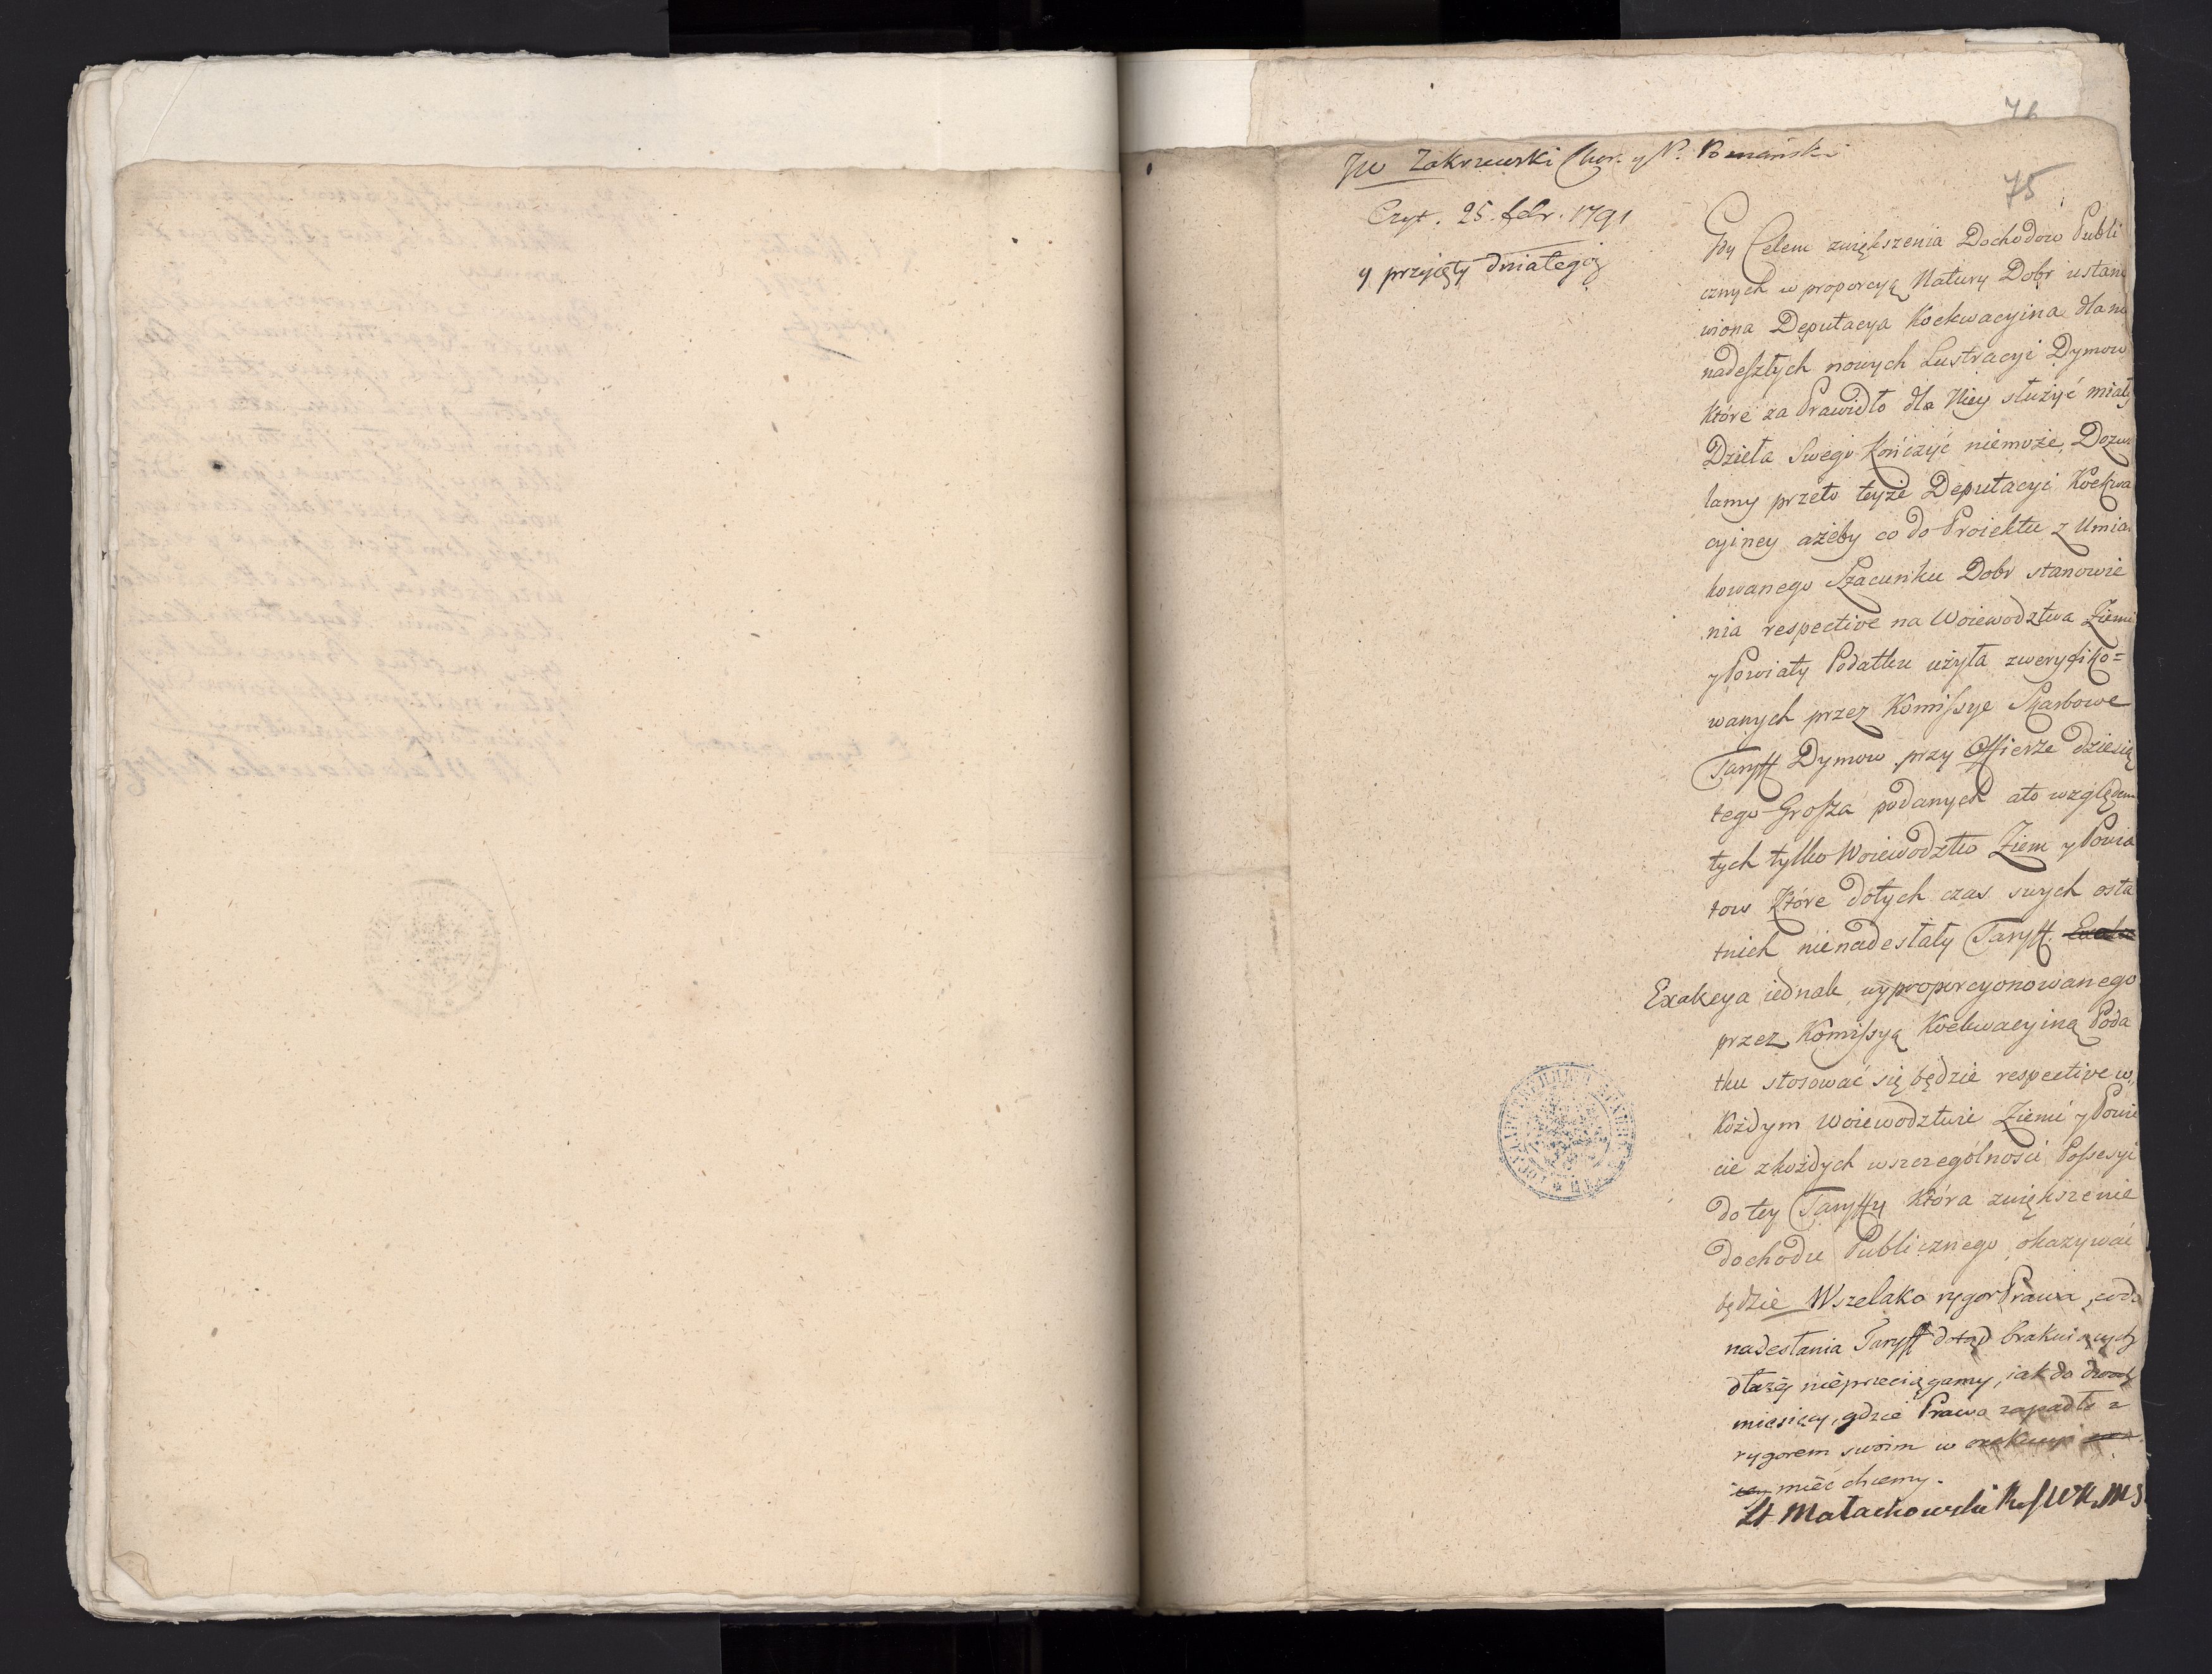 76
JW Zakrzewski Chor. y P. Poznański
75
Czyt. 25. febr. 1791
y przyięty dnia tegoż
Gdy Celem zwiększenia Dochodow Publi
cznych w proporcyą Natury Dobr ustano
wiona Deputacya Koekwacyina dla nie
nadeszłych nowych Lustracyi Dymow
które za Prawidło dla Niey służyć miały
Dzieła Swego kończyć niemoże, Dozwa
lamy przeto teyże Deputacyi Koekwa
cyiney ażeby co do Proiektu z Umiar
kowanego Szacunku Dobr stanowie
nia respective na Woiewodztwa Ziemie
y Powiaty Podatku użyła zweryfiko=
wanych przez Kommissye Skarbowe
Taryff Dymow przy Offierze dziesią
tego Grosza podanych a to względem
tych tylko Woiewodztw Ziem y Powia
tow które dotych czas swych osta
tnich nienadesłały Taryff.
Exakcya iednak wyproporcyonowanego
przez Kommissyą Koekwacyiną Poda
tku stosować się będzie respective w
każdym Woiewodztwie Ziemi y Powie
cie z każdych w szczególności Possesyi
do tey Taryffy która zwiększenie
dochodu Publicznego okazywać
będzie Wszelako rygor Prawa, co do
nadesłania Taryff dotąd brakuiących
dłużey nieprzeciągamy, iak do dwoch
miesięcy, gdzie Prawo zapadłe z
rygorem swoim w exekucyi
mieć chcemy.
St Małachowski R S W K. M S